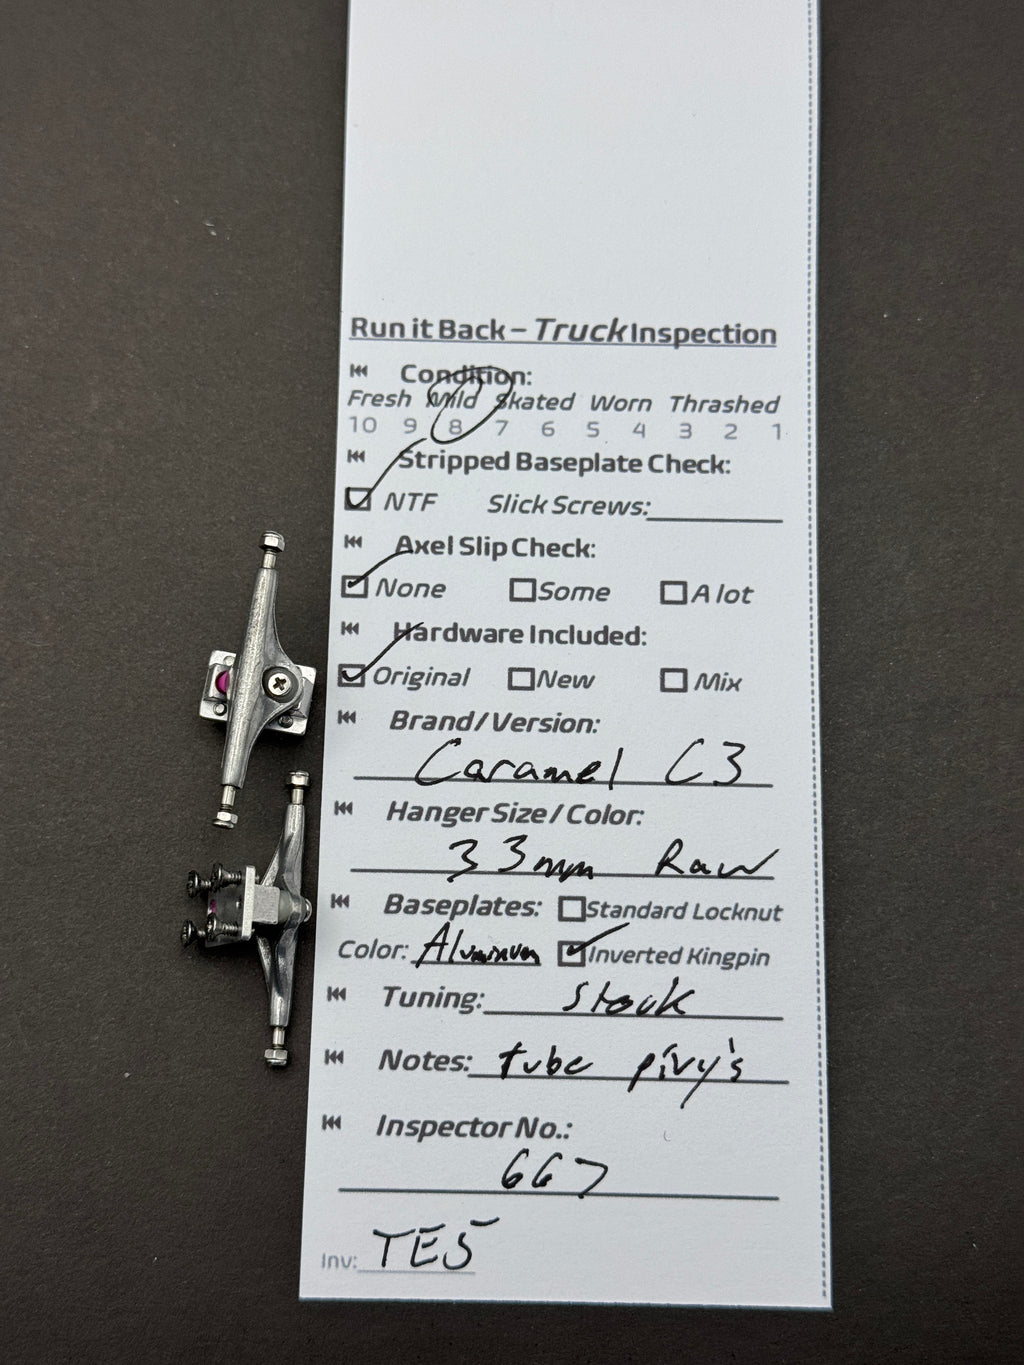 Run it Back – Truck Inspection
Condition:
Fresh Mild Skated Worn Thrashed
10 9 8 7 6 5 4 3 2 1
Stripped Baseplate Check:
NTF Slick Screws:
Axel Slip Check:
None Some A lot
Hardware Included:
Original New Mix
Brand/Version:
Caramel C3
Hanger Size/Color:
33mm Raw
Baseplates: Standard Locknut
Color: Aluminum Inverted Kingpin
Tuning: Stock
Notes: tube pivy's
Inspector No.:
667
Inv: TE5